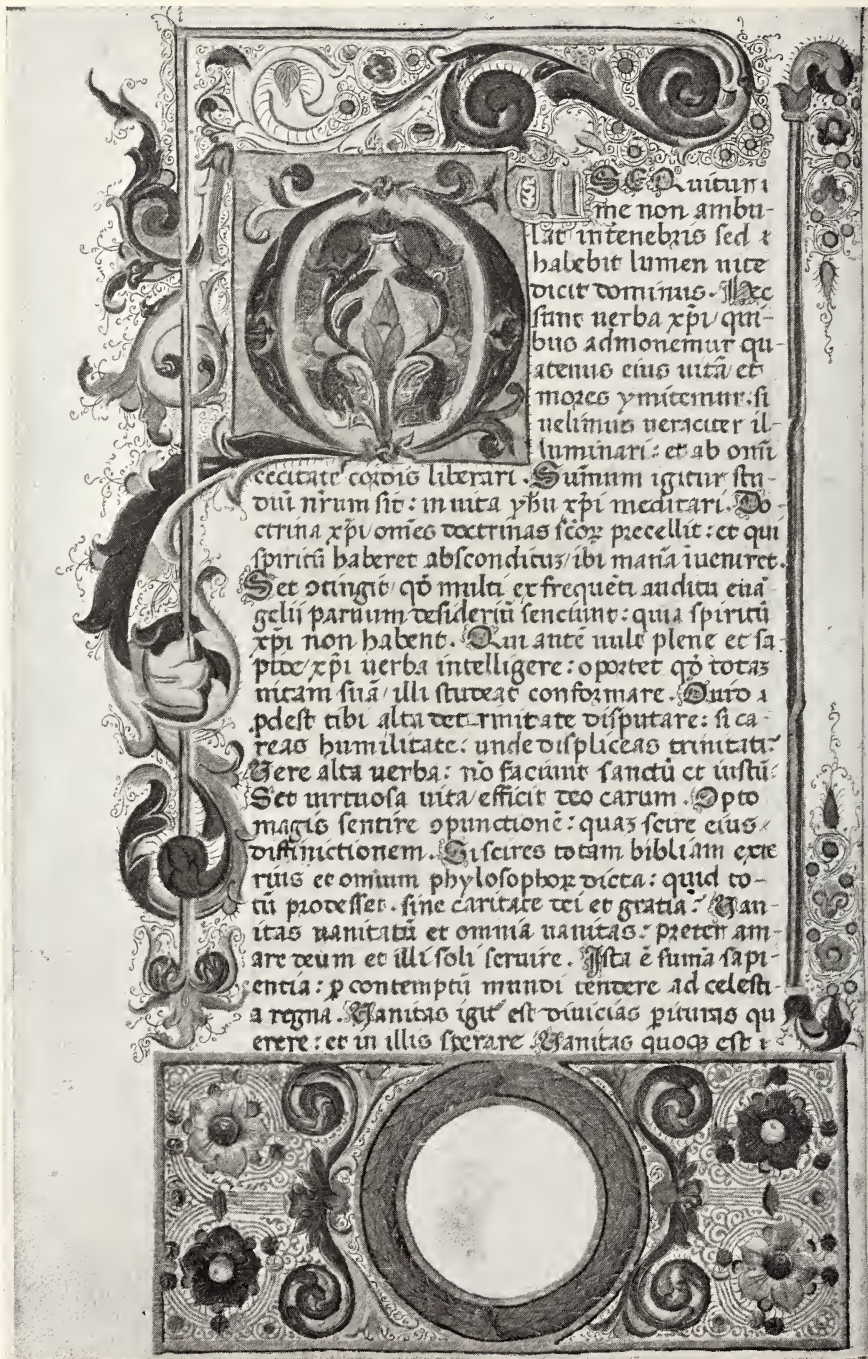 QUI SEQuitur
me non ambu-
lat in tenebris sed
habebit lumen uite
dicit dominus. Hec
sunt uerba xp̄i quí-
bus admonemur qu-
atenus eius uitā et
mores ymitemur. si
uelimus ueraciter il-
luminari: et ab omī
cecitate cordis liberari. Summum igitur stu-
diū nr̄um sit: in uita yh̄u xp̄i meditari. Do
ctrina xp̄i om̄es doctrinas sc̄oꝝ precellit: et qui
spiritū haberet abscondituꝫ ibi man̄a īueniret.
Set ꝯtingit qđ multi ex frequēti auditu eua
gelii paruum desideriū senciunt: quia spiritū
xp̄i non habent. Qui autē uult plene et sa
pide xp̄i uerba intelligere: oportet qđ totaꝫ
uitam suā illi studeat conformare. Quid
ꝓdest tibi alta de trinitate disputare: si ca-
reas humilitate: unde displiceas trinitati?
Uere alta uerba: nō faciunt sanctū et iustū:
Set uirtuosa uita efficit deo carum. Opto
magis sentire ꝯpunctionē: quaꝫ scire eius
diffinictionem. Si scires totam bibliam exte
rius et omnium phylosophoꝝ dicta: quid to-
tū prodesset. sine caritate dei et gratia? Uan-
itas uanitatū et omnia uanitas: preter am-
are deum et illi soli seruire. Ista ē sum̄a sapi-
entia: ꝑ contemptū mundi tendere ad celesti-
a regna. Uanitas igit᷑ est diuicias ꝑituras qu
erere: et in illis sperare. Uanitas quoqꝫ est